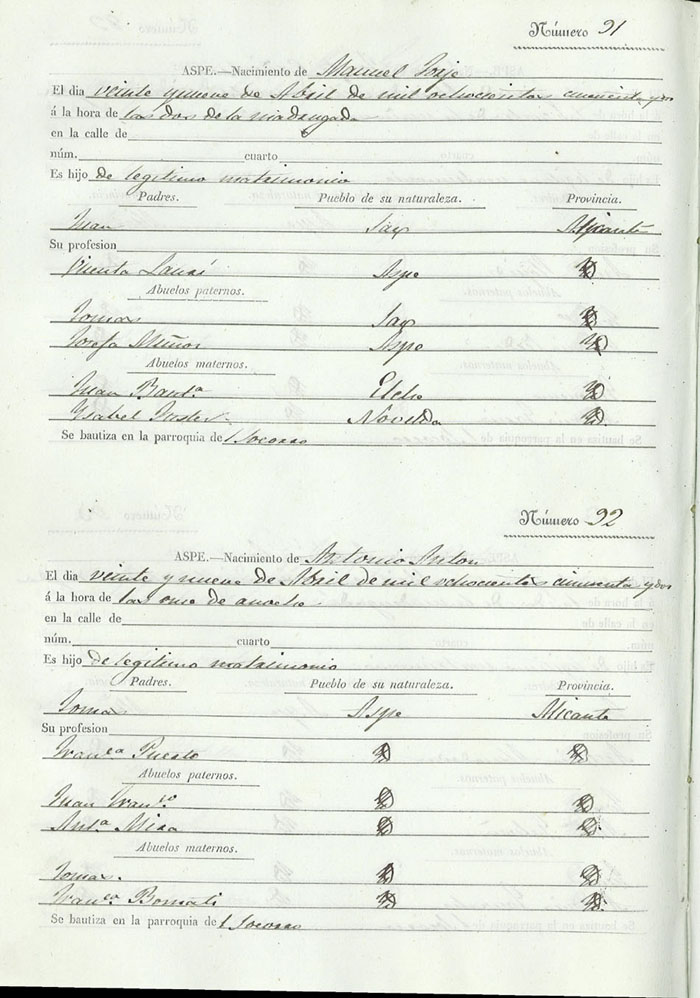 Número 91
ASPE.—Nacimiento de Manuel Jorje
El dia veinte y nueve de Abril de mil ochocientos cincuenta y dos
á la hora de las dos de la madrugada
en la calle de
núm. cuarto
Es hijo de legitimo matrimonio
Padres. Pueblo de su naturaleza. Provincia.
Juan Sax Alicante
Su profesion
Vicenta Aspe
Abuelos paternos.
Tomas Sax
Josefa Muñoz Aspe
Abuelos maternos.
Juan Baut.ª Elche
Ysabel Novelda
Se bautiza en la parroquia de l Socorro
Número 92
ASPE.—Nacimiento de Antonio Anton
El dia veinte y nueve de Abril de mil ochocientos cincuenta y dos
á la hora de las once de anoche
en la calle de
núm. cuarto
Es hijo de legitimo matrimonio
Padres. Pueblo de su naturaleza. Provincia.
Tomas Aspe Alicante
Su profesion
Fran.ca Puerto
Abuelos paternos.
Juan Fran.co
Ant.ª Mira
Abuelos maternos.
Tomas.
Fran.ca
Se bautiza en la parroquia de l Socorro